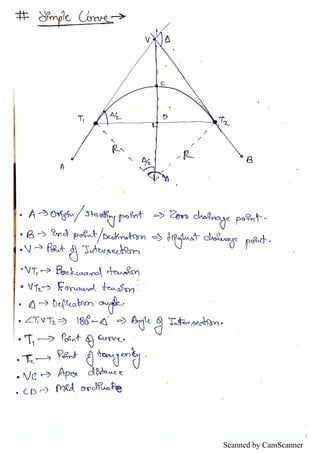 # Simple Curve →
V Δ
C
T₁ Δ/2 D T₂
R Δ/2 R
A Δ B
• A → Origin/Starting point ⇒ Zero chainage point.
• B → End point/Destination ⇒ Highest chainage point.
• V → Point of Intersection
• VT₁ → Backward tension
• VT₂ → Forward tension
• Δ → Deflection angle
• ∠T₁VT₂ ⇒ 180° - Δ ⇒ Angle of Intersection.
• T₁ → Point of curve.
• T₂ → Point of tangenty.
• VC → Apex distance
• CD → Mid ordinate
Scanned by CamScanner